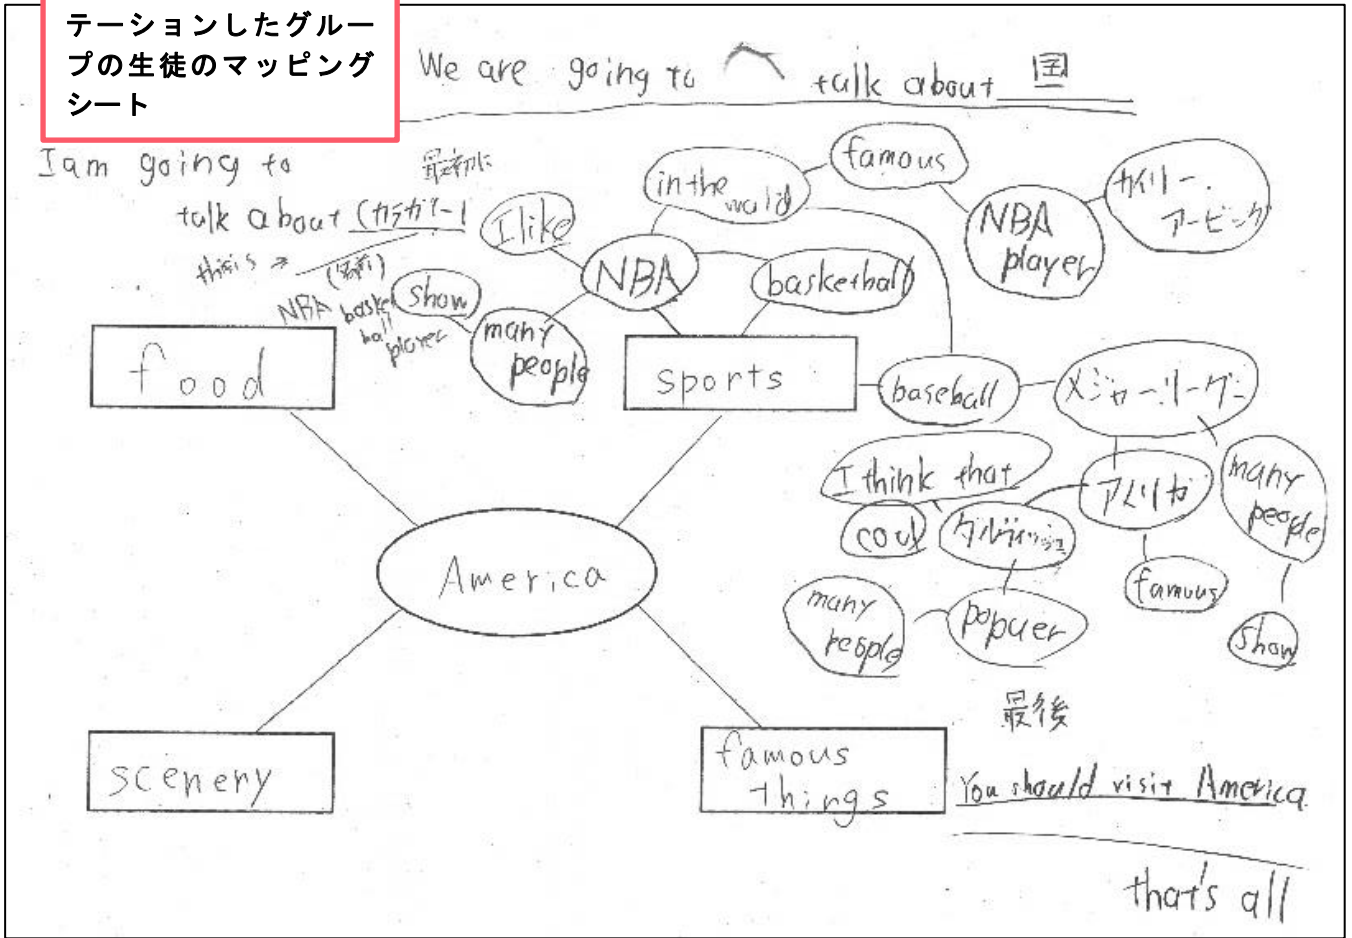 テーションしたグルー
プの生徒のマッピング
シート
We are going to talk about 国
I am going to
最初に
talk about (カテゴリー)
this is →
(名前)
NBA basket
ball
player
I like
in the
world
famous
NBA
player
カイリー・
アービング
NBA
basketball
show
many
people
food
sports
baseball
メジャーリーグ
I think that
coul
ダルヴィッシュ
アメリカ
many
people
famous
show
many
people
popuer
America
scenery
famous
things
最後
You should visit America
that's all